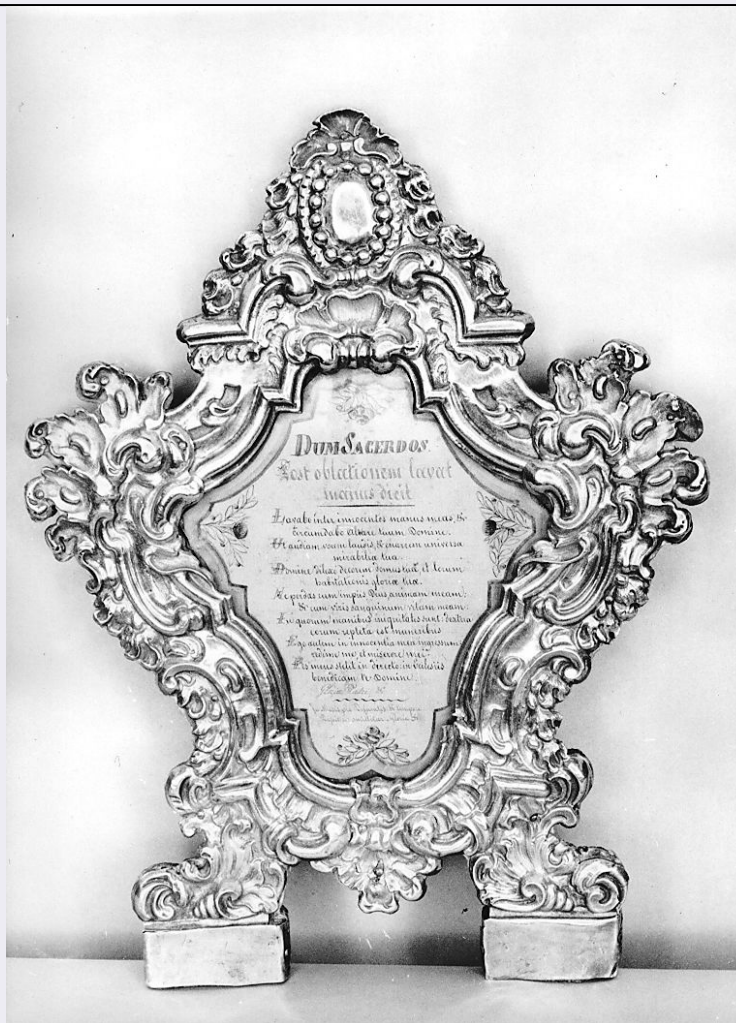 DUM SACERDOS
Post oblectionem lavat
manus dicit
Lavabo inter innocentes manus meas, &
circumdabo Altare tuum Domine.
Ut audiam vocem laudis, & enarrem universa
mirabilia tua.
Domine dilexi decorem domus tuæ et locum
habitationis gloriæ tuæ.
Ne perdas cum impiis Deus animam meam:
& cum viris sanguinum vitam meam.
In quorum manibus iniquitates sunt: dextera
eorum repleta est muneribus
Ego autem in innocentia mea ingressus sum
redime me, et miserere mei
Pes meus stetit in directo: in
benedicam te Domine.
Gloria Patri &.